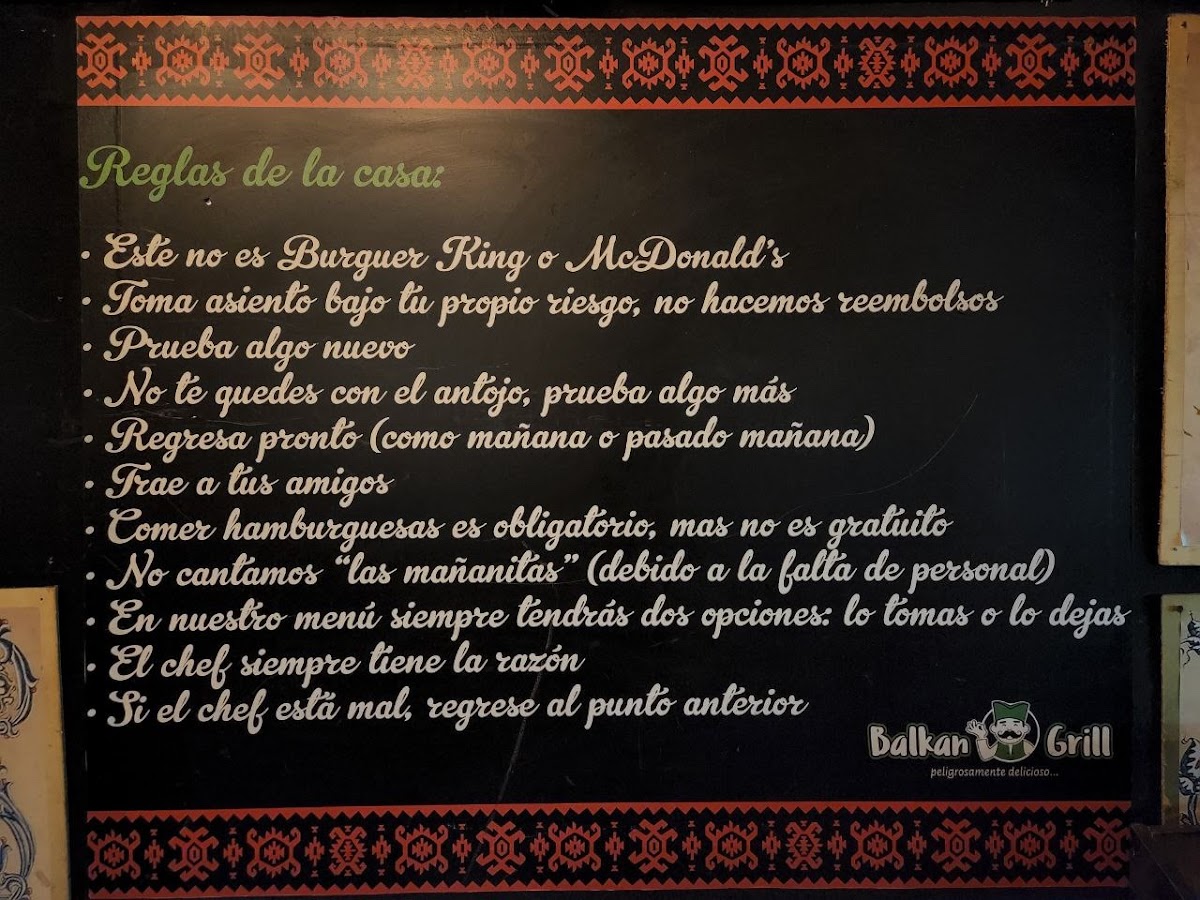 Reglas de la casa:
• Este no es Burguer King o McDonald's
• Toma asiento bajo tu propio riesgo, no hacemos reembolsos
• Prueba algo nuevo
• No te quedes con el antojo, prueba algo más
• Regresa pronto (como mañana o pasado mañana)
• Trae a tus amigos
• Comer hamburguesas es obligatorio, mas no es gratuito
• No cantamos “las mañanitas” (debido a la falta de personal)
• En nuestro menú siempre tendrás dos opciones: lo tomas o lo dejas
• El chef siempre tiene la razón
• Si el chef está mal, regrese al punto anterior
Balkan Grill
peligrosamente delicioso...